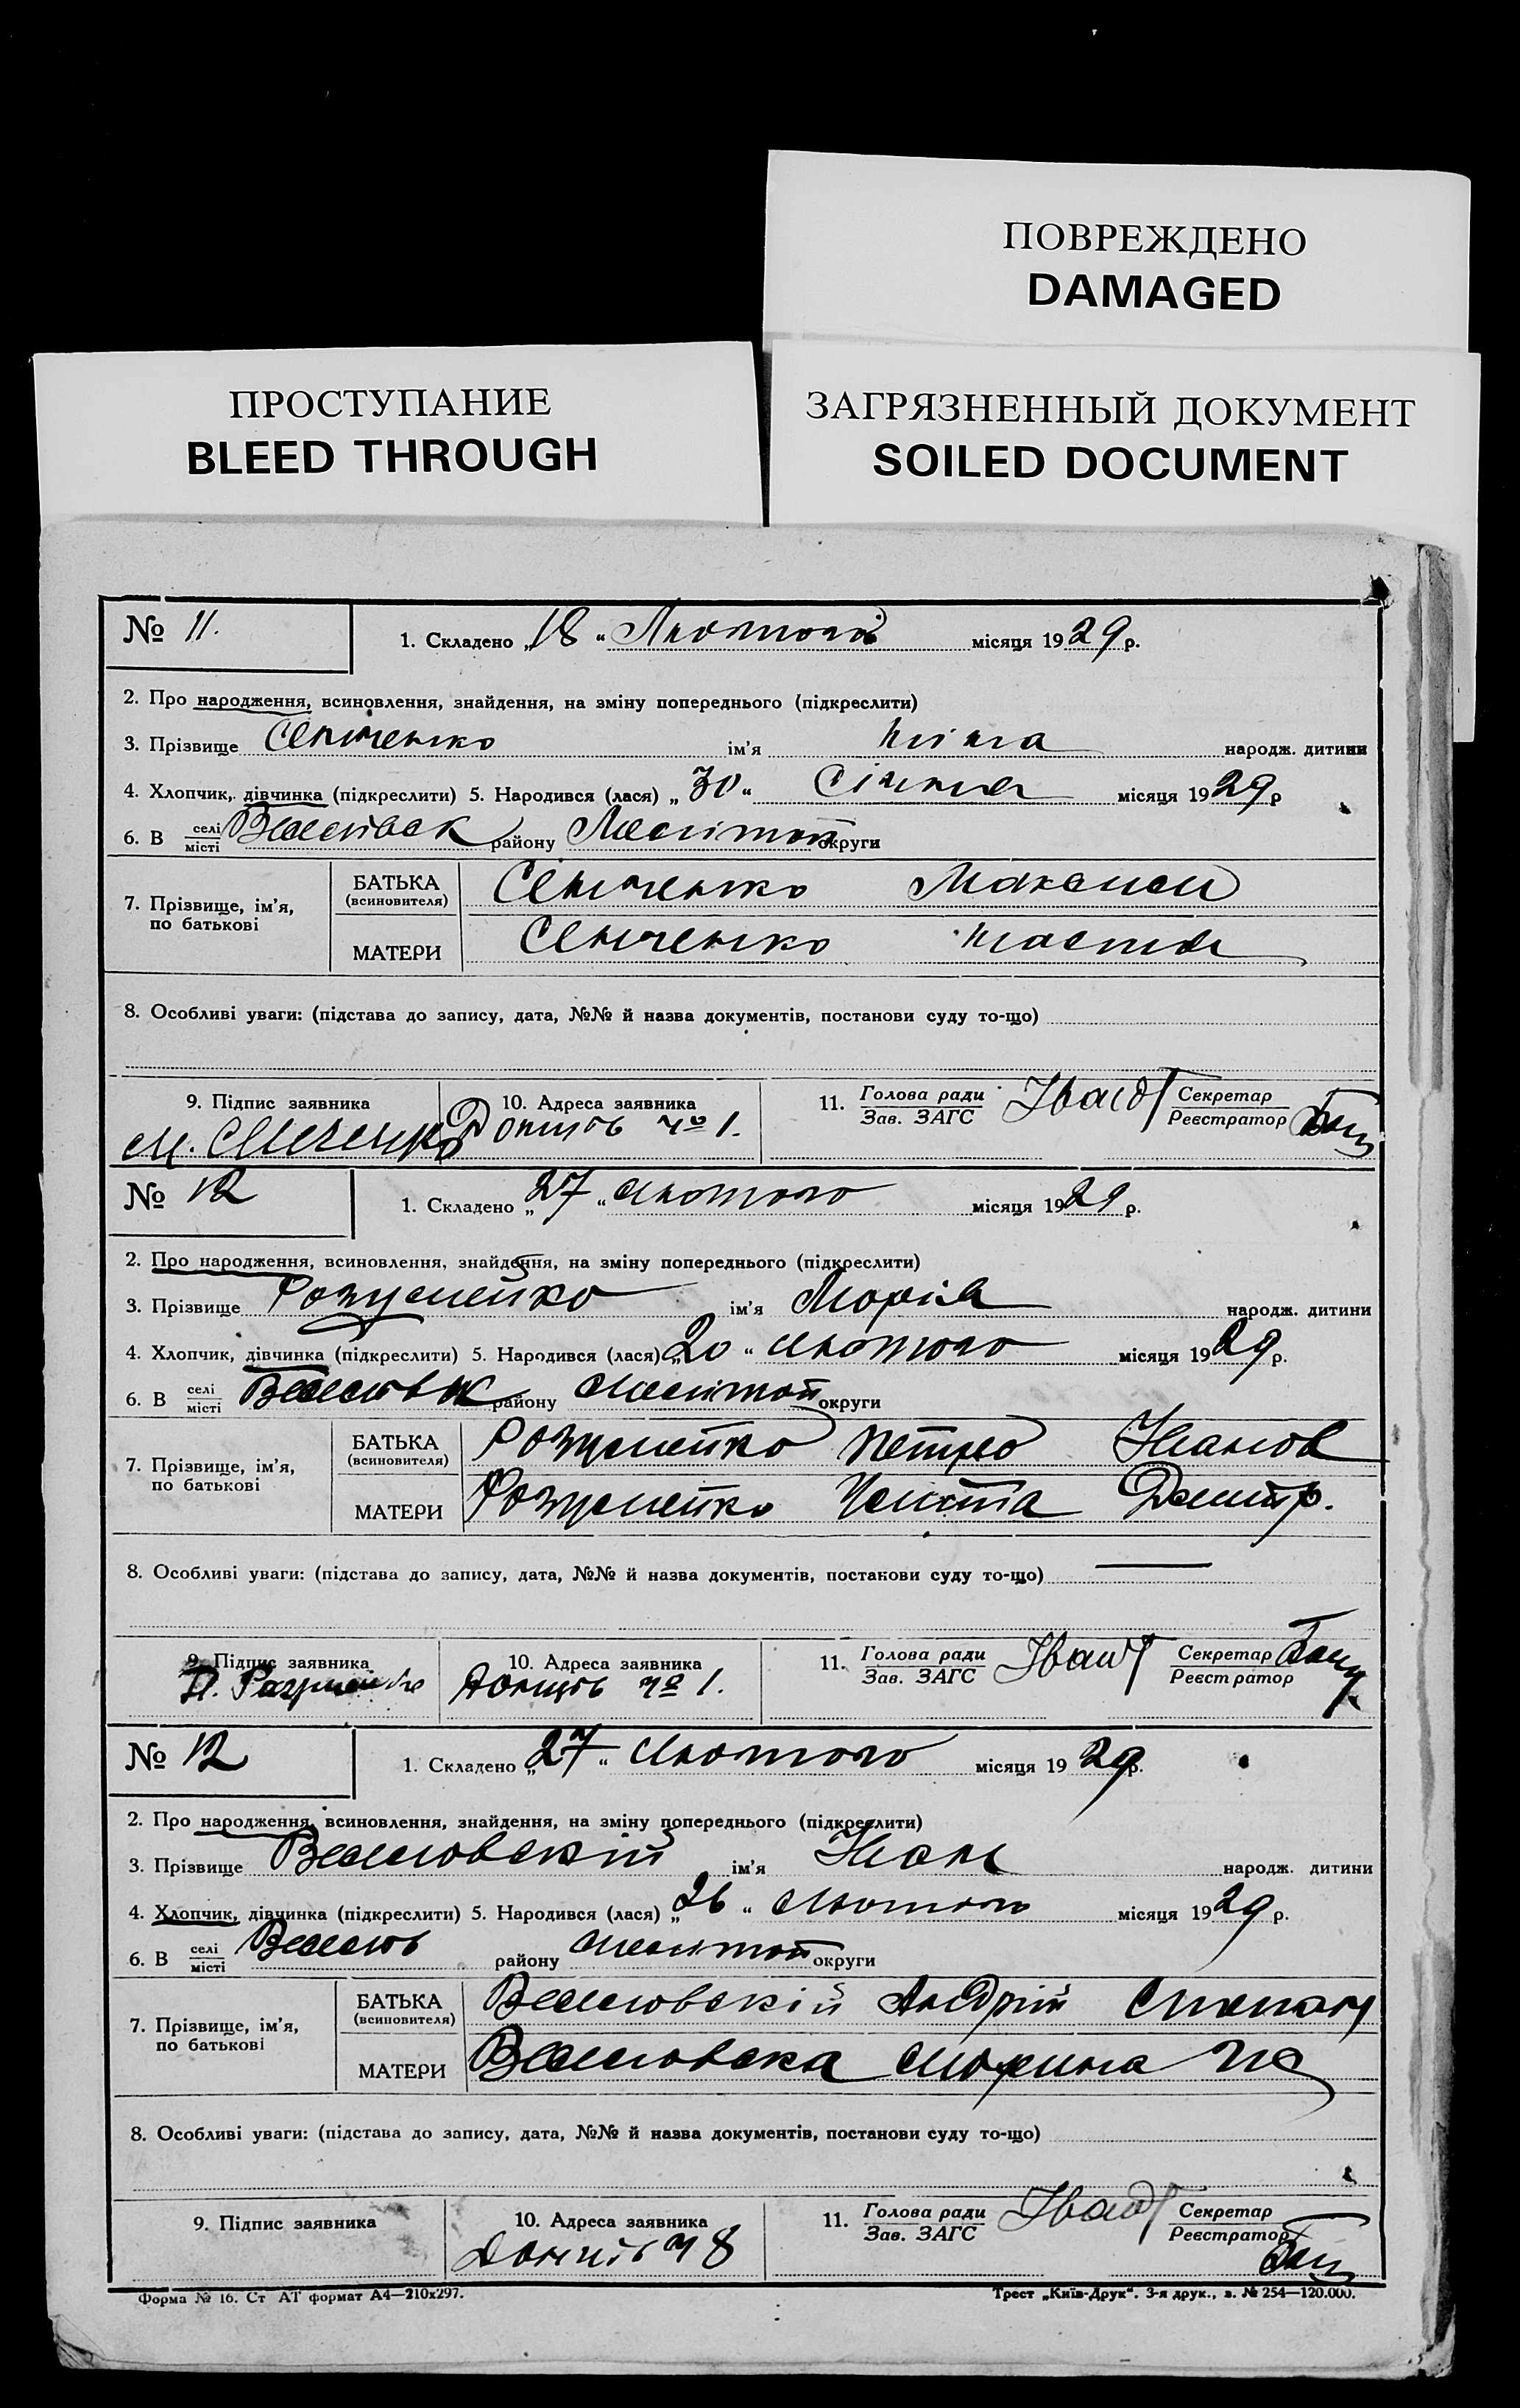 ПОВРЕЖДЕНО
DAMAGED
ПРОСТУПАНИЕ
BLEED THROUGH
ЗАГРЯЗНЕННЫЙ ДОКУМЕНТ
SOILED DOCUMENT
№ 11.
1. Складено „18“ Лютого місяця 1929 р.
2. Про народження, всиновлення, знайдення, на зміну попереднього (підкреслити)
3. Прізвище Сенченко ім'я Ніна народж. дитини
4. Хлопчик, дівчинка (підкреслити) 5. Народився (лася) „30“ Січня місяця 1929 р
6. В селі місті району Мелітоп округи
7. Прізвище, ім'я, по батькові
БАТЬКА (всиновителя) Сенченко Максим
МАТЕРИ Сенченко Настя
8. Особливі уваги: (підстава до запису, дата, №№ й назва документів, постанови суду то-що)
9. Підпис заявника
10. Адреса заявника
11. Голова ради Зав. ЗАГС
Секретар Реєстратор
М. Сенченко
№ 1.
№ 12
1. Складено „27“ Лютого місяця 1929 р.
2. Про народження, всиновлення, знайдення, на зміну попереднього (підкреслити)
3. Прізвище ім'я Марія народж. дитини
4. Хлопчик, дівчинка (підкреслити) 5. Народився (лася) „20“ Лютого місяця 1929 р.
6. В селі місті району Мелітоп округи
7. Прізвище, ім'я, по батькові
БАТЬКА (всиновителя) Петро Іванов
МАТЕРИ Дмитр.
8. Особливі уваги: (підстава до запису, дата, №№ й назва документів, постанови суду то-що)
9. Підпис заявника
10. Адреса заявника
11. Голова ради Зав. ЗАГС
Секретар Реєстратор
№ 1.
№ 12
1. Складено „27“ Лютого місяця 1929 р.
2. Про народження, всиновлення, знайдення, на зміну попереднього (підкреслити)
3. Прізвище ім'я Іван народж. дитини
4. Хлопчик, дівчинка (підкреслити) 5. Народився (лася) „26“ Лютого місяця 1929 р.
6. В селі місті району Мелітоп округи
7. Прізвище, ім'я, по батькові
БАТЬКА (всиновителя) Андрій Степан
МАТЕРИ Марина
8. Особливі уваги: (підстава до запису, дата, №№ й назва документів, постанови суду то-що)
9. Підпис заявника
10. Адреса заявника
11. Голова ради Зав. ЗАГС
Секретар Реєстратор
Форма № 16. Ст АТ формат А4—210х297.
Трест „Київ-Друк“. 3-я друк., з. № 254—120.000.